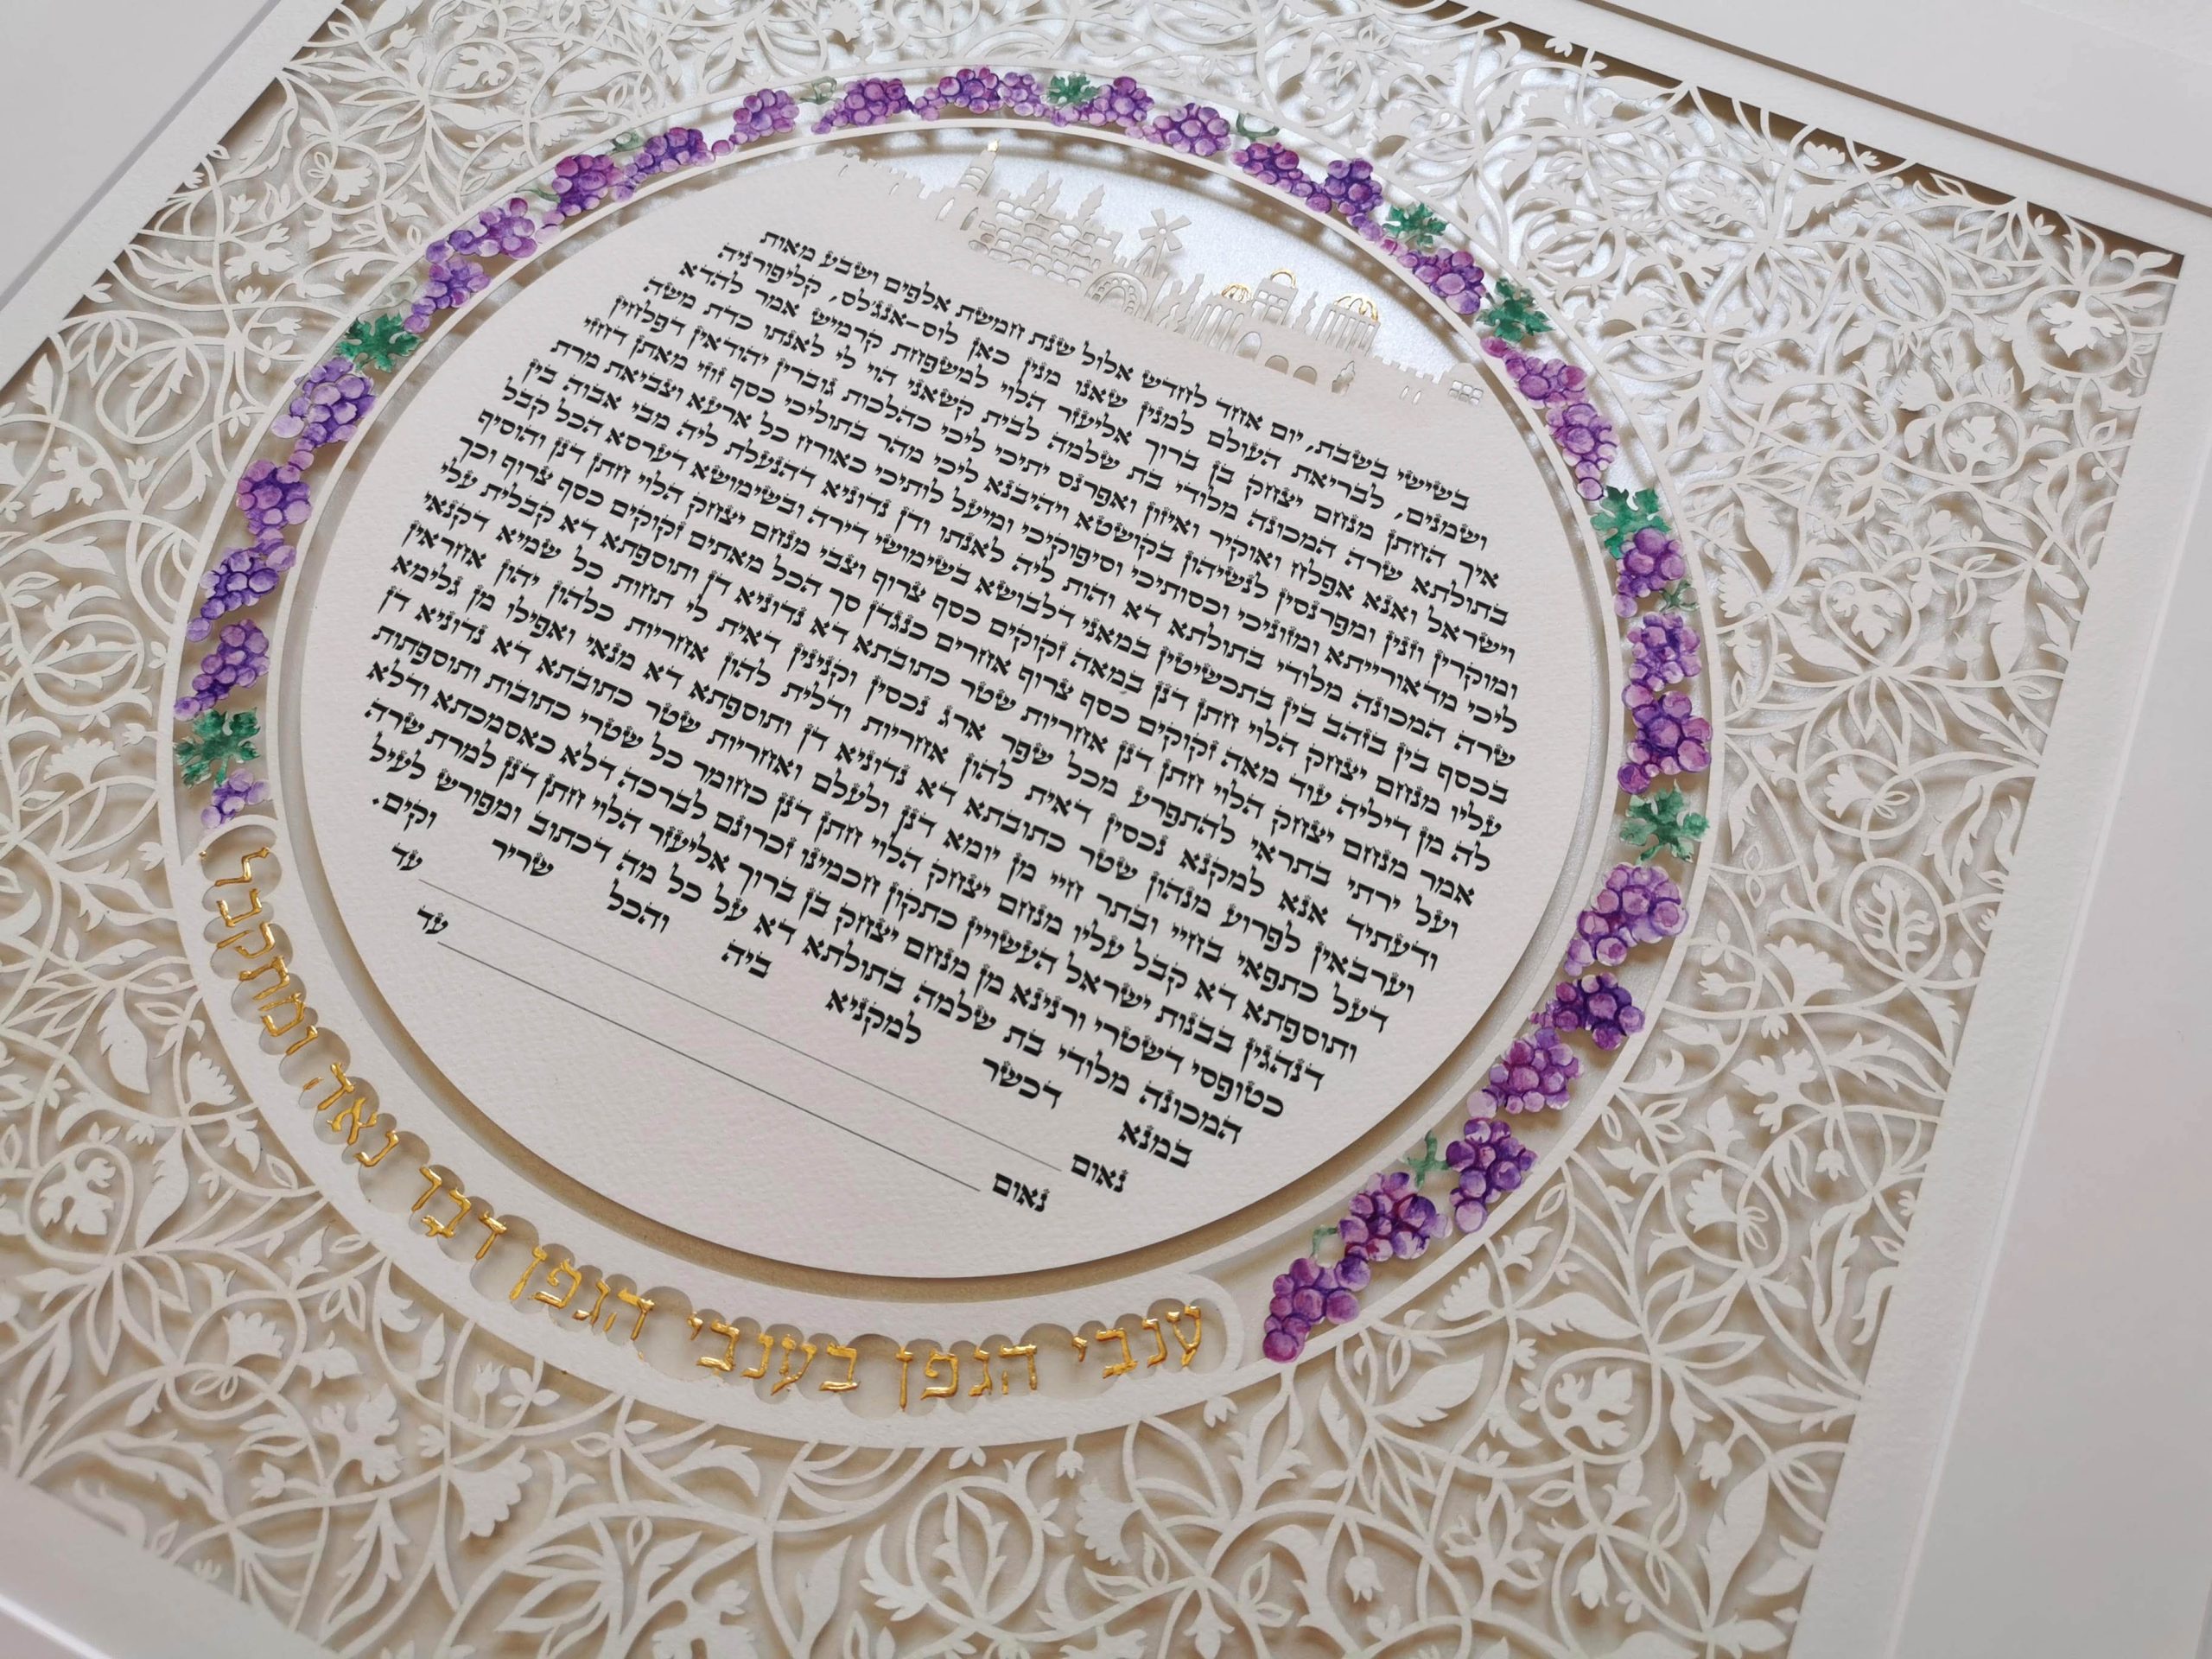 בשישי בשבת, יום אחד לחדש אלול שנת חמשת אלפים ושבע מאות
ושמנים, לבריאת העולם למנין שאנו מנין כאן לוס-אנג'לס, קליפורניה
איך החתן מנחם יצחק בן ברוך אליעזר הלוי למשפחת קרמיש אמר להדא
בתולתא שרה המכונה מלודי בת שלמה לבית קשאני הוי לי לאנתו כדת משה
וישראל ואנא אפלח ואוקיר ואיזון ואפרנס יתיכי ליכי כהלכות גוברין יהודאין דפלחין
ומוקרין וזנין ומפרנסין לנשיהון בקושטא ויהיבנא ליכי מהר בתוליכי כסף זוזי מאתן דחזי
ליכי מדאורייתא ומזוניכי וכסותיכי וסיפוקיכי ומיעל לותיכי כאורח כל ארעא וצביאת מרת
שרה המכונה מלודי בתולתא דא והות ליה לאנתו ודן נדוניא דהנעלת ליה מבי אבוה בין
בכסף בין בזהב בין בתכשיטין במאני דלבושא בשימושי דירה ובשימושא דערסא הכל קבל
עליו מנחם יצחק הלוי חתן דנן במאה זקוקים כסף צרוף וצבי מנחם יצחק הלוי חתן דנן והוסיף
לה מן דיליה עוד מאה זקוקים כסף צרוף אחרים כנגדן סך הכל מאתים זקוקים כסף צרוף וכך
אמר מנחם יצחק הלוי חתן דנן אחריות שטר כתובתא דא נדוניא דן ותוספתא דא קבלית עלי
ועל ירתי בתראי להתפרע מכל שפר ארג נכסין וקנינין דאית לי תחות כל שמיא דקנאי
ודעתיד אנא למקנא נכסין דאית להון אחריות ודלית להון אחריות כלהון יהון אחראין
וערבאין לפרוע מנהון שטר כתובתא דא נדוניא דן ותוספתא דא מנאי ואפילו מן גלימא
דעל כתפאי בחיי ובתר חיי מן יומא דנן ולעלם ואחריות שטר כתובתא דא נדוניא דן
ותוספתא דא קבל עליו מנחם יצחק הלוי חתן דנן כחומר כל שטרי כתובות ותוספתות
דנהגין בבנות ישראל העשויין כתקון חכמינו זכרונם לברכה דלא כאסמכתא ודלא
כטופסי דשטרי וקנינא מן מנחם יצחק בן ברוך אליעזר הלוי חתן דנן למרת שרה
המכונה מלודי בת שלמה בתולתא דא על כל מה דכתוב ומפורש לעיל
במנא דכשר למקניא ביה והכל שריר וקים.
נאום עד
נאום עד
ענבי הגפן בענבי הגפן דבר נאה ומתקבל